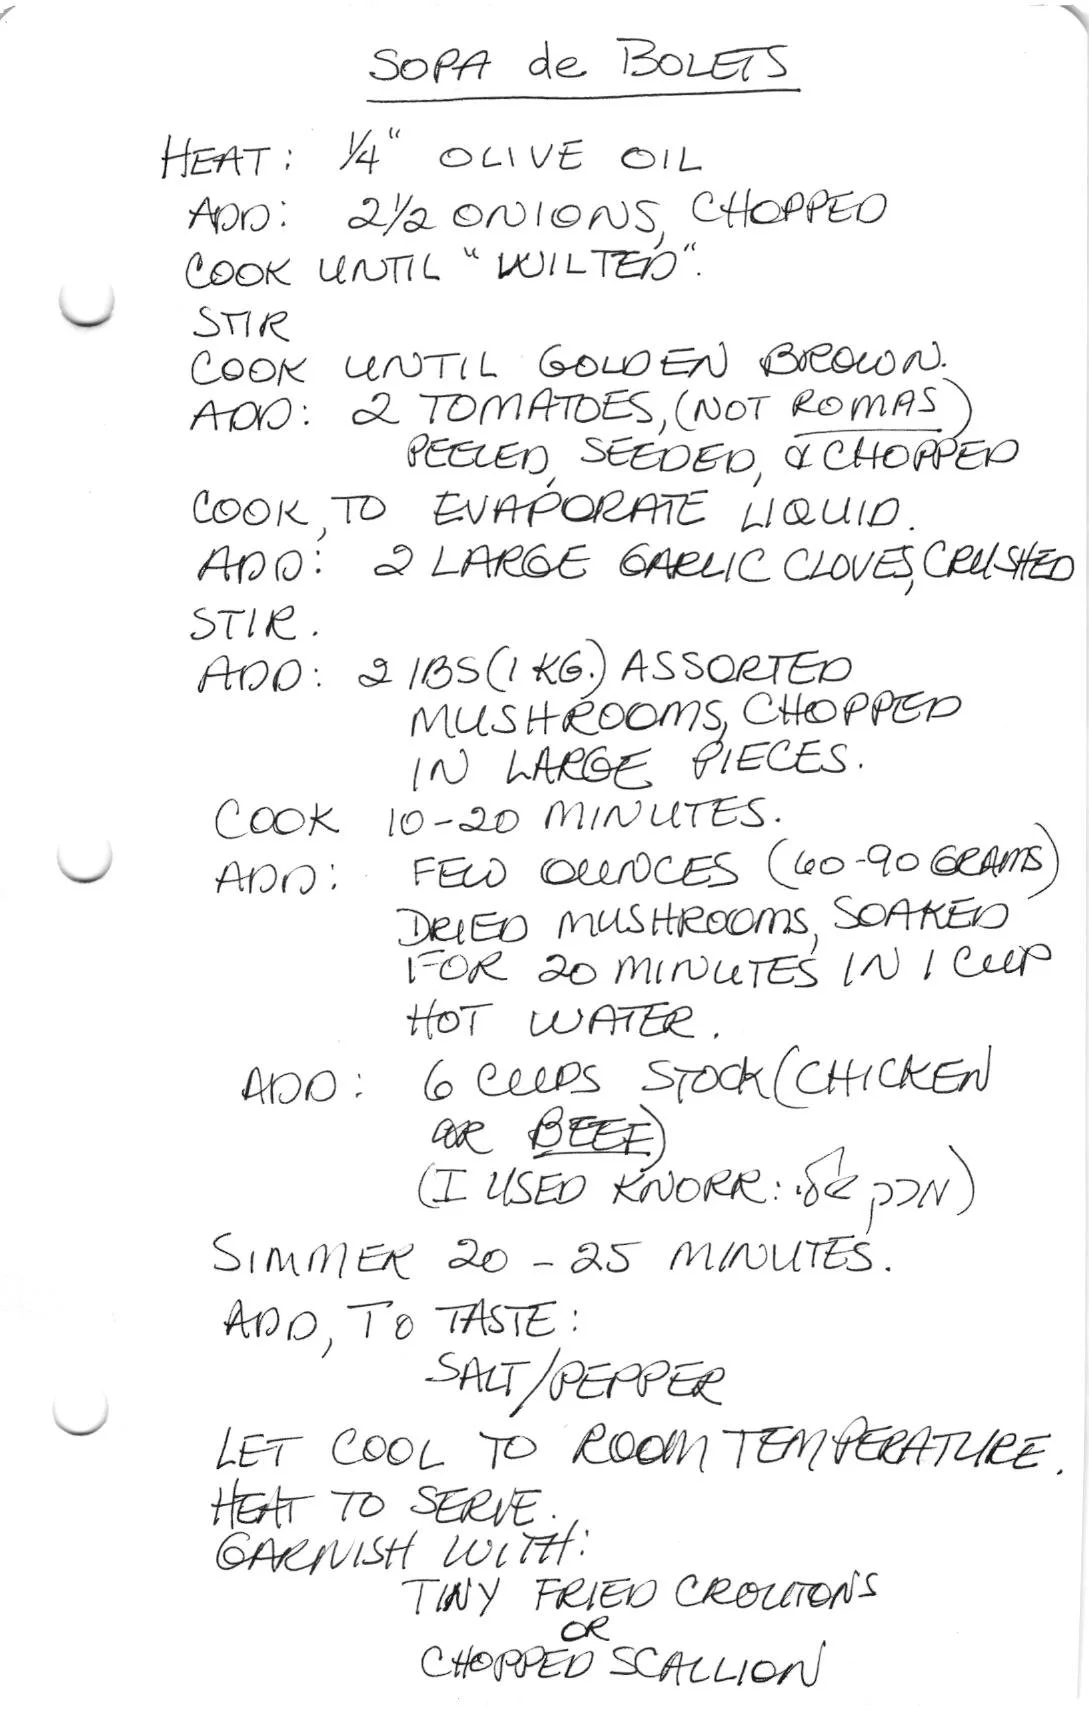 SOPA de BOLETS
HEAT: 1/4" OLIVE OIL
ADD: 2 1/2 ONIONS, CHOPPED
COOK UNTIL "WILTED".
STIR
COOK UNTIL GOLDEN BROWN.
ADD: 2 TOMATOES, (NOT ROMAS)
PEELED, SEEDED, & CHOPPED
COOK, TO EVAPORATE LIQUID.
ADD: 2 LARGE GARLIC CLOVES, CRUSHED
STIR.
ADD: 2 LBS (1 KG.) ASSORTED
MUSHROOMS, CHOPPED
IN LARGE PIECES.
COOK 10-20 MINUTES.
ADD: FEW OUNCES (60-90 GRAMS)
DRIED MUSHROOMS, SOAKED
FOR 20 MINUTES IN 1 CUP
HOT WATER.
ADD: 6 CUPS STOCK (CHICKEN
OR BEEF)
(I USED KNORR: )
SIMMER 20 - 25 MINUTES.
ADD, TO TASTE:
SALT/PEPPER
LET COOL TO ROOM TEMPERATURE.
HEAT TO SERVE.
GARNISH WITH:
TINY FRIED CROUTONS
OR
CHOPPED SCALLION